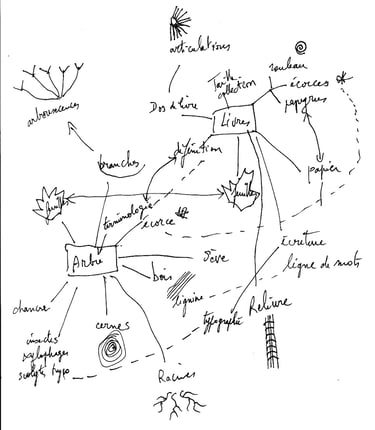 articulations
rouleau
Taille
collection
écorces
papyrus
arborescences
Dos de livre
Livres
définition
branches
papier
feuilles
feuilles
terminologie
écorce
écriture
Arbre
sève
ligne de mots
bois
lignine
chancre
Reliure
typographie
cernes
insectes
xylophages
scolytes typo
Racines